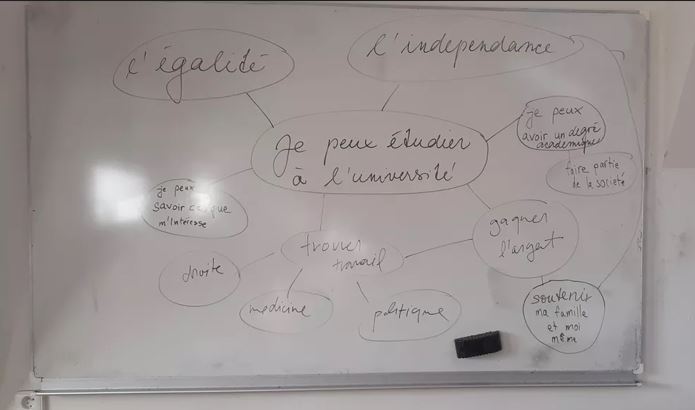 l'égalité
l'independance
Je peux étudier
à l'université
je peux
avoir un degré
academique
faire partie
de la société
je peux
savoir ce que
m'intéresse
trouver
travail
gagner
l'argent
droite
medicine
politique
soutenir
ma famille
et moi
même